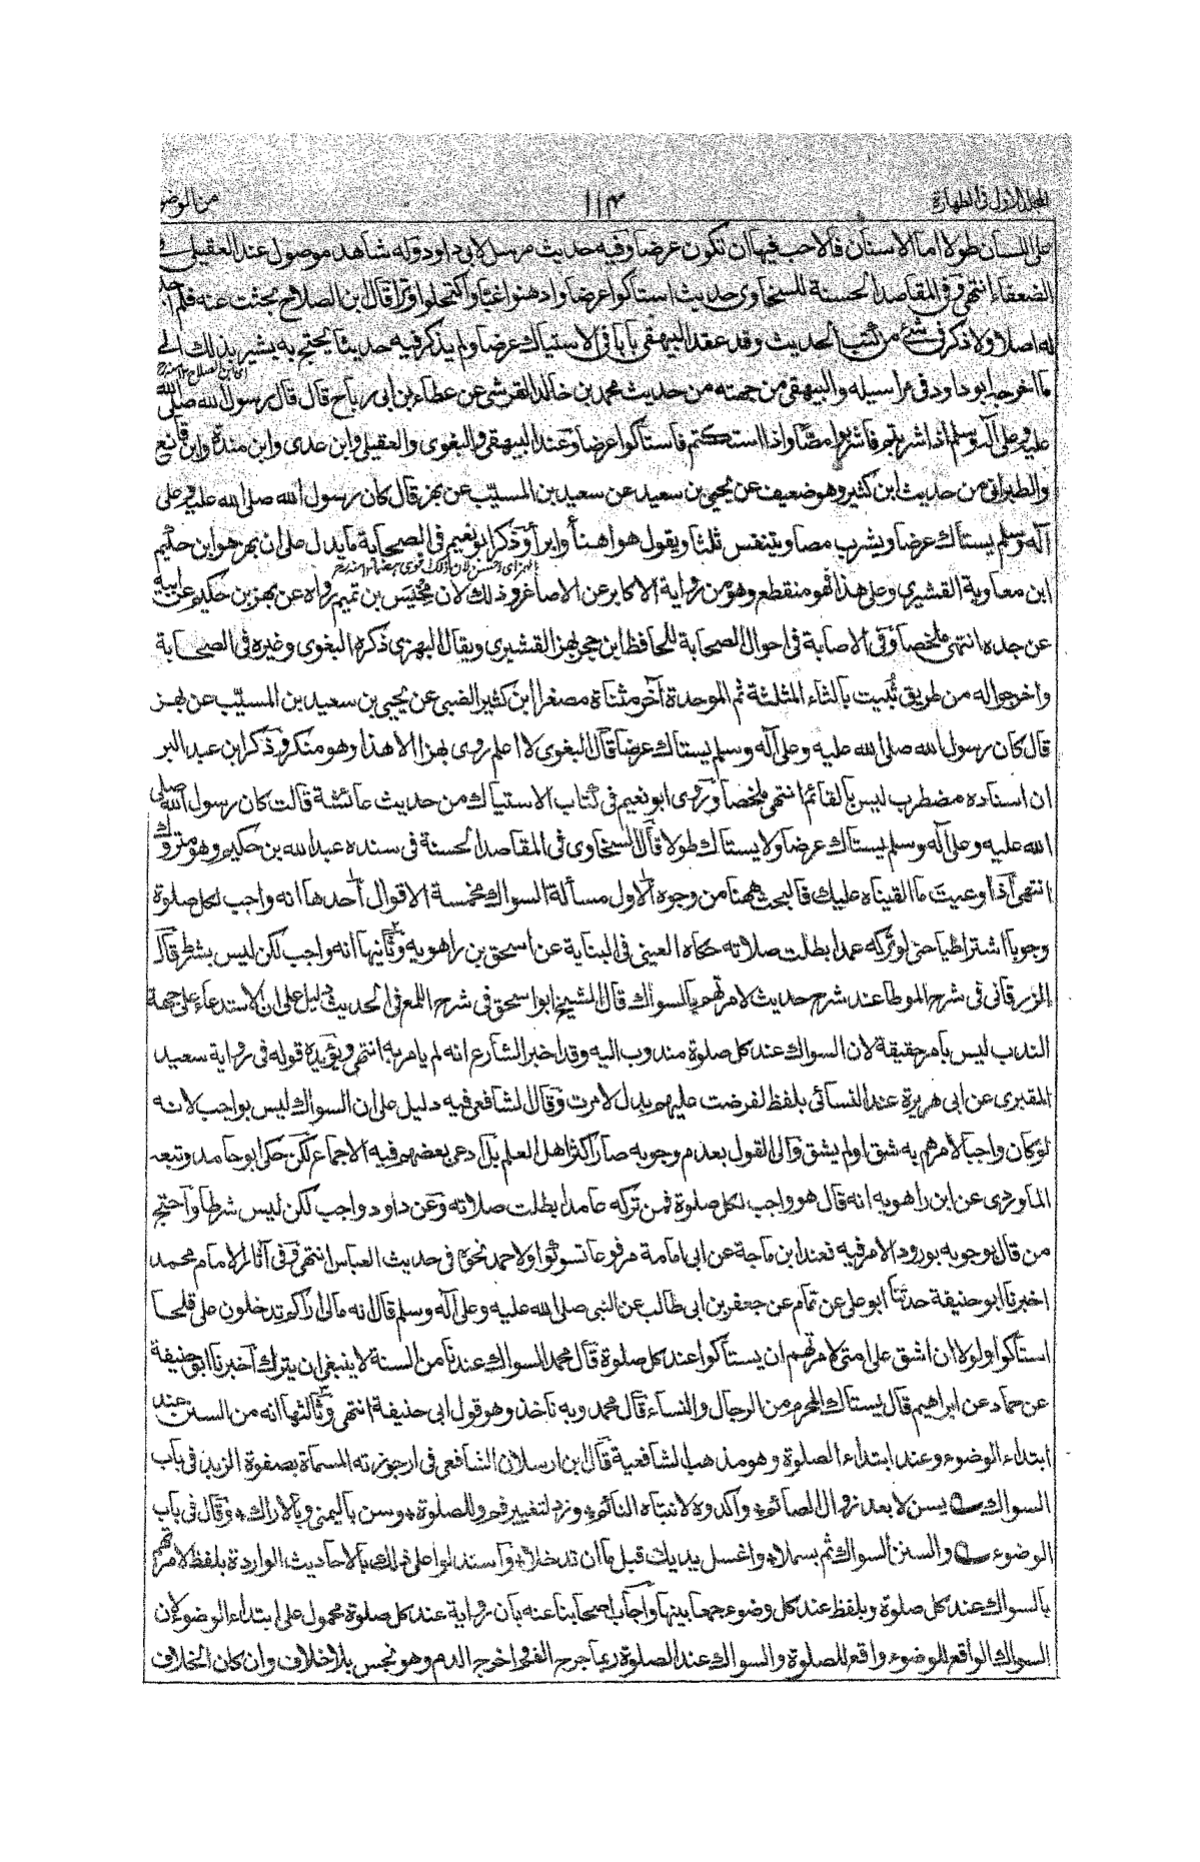 المجلد الاول فى الطهارة ١١٣ من الوضو
على اللسان طولا اما الاسنان فالاحب فيها ان تكون عرضا وفيه حديث مرسل لابى داود وله شاهد موصول عند العقيلى فى
الضعفاء انتهى وفى المقاصد الحسنة للسخاوى حديث استاكوا عرضا وادهنوا غبا واكتحلوا وترا قال ابن الصلاح بحثت عنه فلم اجد
له اصلا ولا ذكر فى شئ من كتب الحديث وقد عقد البيهقى بابا فى الاستياك عرضا ولم يذكر فيه حديثا يحتج به يشير بذلك الى
اى ابن الصلاح ١٢ منه رح
ما اخرجه ابو داود فى مراسيله والبيهقى من جهته من حديث محمد بن خالد القرشى عن عطاء بن ابى رباح قال قال رسول الله صلى الله
عليه وعلى آله وسلم اذا شربتم فاشربوا مصا واذا استكتم فاستاكوا عرضا وعند البيهقى والبغوى والعقيلى وابن عدى وابن مندة وابن قانع
والطبرانى من حديث ابن كثير وهو ضعيف عن يحيى بن سعيد عن سعيد بن المسيّب عن بهز قال كان رسول الله صلى الله عليه وعلى
آله وسلم يستاك عرضا ويشرب مصا ويتنفس ثلثا ويقول هو اهنأ وامرأ وذكر ابو نعيم فى الصحابة ما يدل على ان بهز هو ابن حكيم
ابن معاوية القشيرى وعلى هذا فهو منقطع وهو من رواية الاكابر عن الاصاغر وذلك لان مخيّس بن تميم رواه عن بهز بن حكيم عن ابيه
عن جده انتهى ملخصا وفى الاصابة فى احوال الصحابة للحافظ ابن حجر بهز القشيرى ويقال البهزى ذكره البغوى وغيره فى الصحابة
واخرجوا له من طريق ثُبيت بالثاء المثلثة ثم الموحدة آخره مثناة مصغرا ابن كثير الضبى عن يحيى بن سعيد بن المسيّب عن بهز
قال كان رسول الله صلى الله عليه وعلى آله وسلم يستاك عرضا قال البغوى لا اعلم روى بهز الا هذا وهو منكر وذكر ابن عبد البر
ان اسناده مضطرب ليس بالقائم انتهى ملخصا وروى ابو نعيم فى كتاب الاستياك من حديث عائشة قالت كان رسول الله صلى
الله عليه وعلى آله وسلم يستاك عرضا ولا يستاك طولا قال السخاوى فى المقاصد الحسنة فى سنده عبد الله بن حكيم وهو متروك
انتهى اذا وعيت ما القيناه عليك فالبحث ههنا من وجوه الاول مسألة السواك مخمسة الاقوال احدها انه واجب لكل صلوة
وجوبا اشتراطيا حتى لو تركه عمدا بطلت صلاته حكاه العينى فى البناية عن اسحق بن راهويه وثانيها انه واجب لكن ليس بشرط قال
الزرقانى فى شرح الموطا عند شرح حديث لامرتهم بالسواك قال الشيخ ابو اسحق فى شرح اللمع فى الحديث دليل على ان الاستدعاء على جهة
الندب ليس بامر حقيقة لان السواك عند كل صلوة مندوب اليه وقد اخبر الشارع انه لم يامر به انتهى ويؤيده قوله فى رواية سعيد
المقبرى عن ابى هريرة عند النسائى بلفظ لفرضت عليهم بدل لامرت وقال الشافعى فيه دليل على ان السواك ليس بواجب لانه
لو كان واجبا لأمرهم به شق او لم يشق والى القول بعدم وجوبه صار اكثر اهل العلم بل ادعى بعضهم فيه الاجماع لكن حكى ابو حامد وتبعه
الماوردى عن ابن راهويه انه قال هو واجب لكل صلوة فمن تركه عامدا بطلت صلاته وعن داود واجب لكن ليس شرطا واحتج
من قال بوجوبه بورود الامر فيه فعند ابن ماجة عن ابى امامة مرفوعا تسوكوا ولاحمد نحوه فى حديث العباس انتهى وفى آثار الامام محمد
اخبرنا ابو حنيفة حدثنا ابو على عن تمام عن جعفر بن ابى طالب عن النبى صلى الله عليه وعلى آله وسلم قال انه مالى اراكم تدخلون على قلحا
استاكوا ولولا ان اشق على امتى لامرتهم ان يستاكوا عند كل صلوة قال محمد السواك عندنا من السنة لا ينبغى ان يترك اخبرنا ابو حنيفة
عن حماد عن ابراهيم قال يستاك المحرم من الرجال والنساء قال محمد وبه ناخذ وهو قول ابى حنيفة انتهى وثالثها انه من السنن عند
ابتداء الوضوء وعند ابتداء الصلوة وهو مذهب الشافعية قال ابن ارسلان الشافعى فى ارجوزته المسماة بصفوة الزبد فى باب
السواك يسن لا بعد زوال الصائم * واكدوه لانتباه النائم * وزد لتغيير فم وللصلوة * وسن باليمنى وبالاراك * وقال فى باب
الوضوء والسنن السواك ثم بسملا * واغسل يديك قبل ما ان تدخلا * واستدلوا على ذلك بالاحاديث الواردة بلفظ لامرتهم
بالسواك عند كل صلوة وبلفظ عند كل وضوء جمعا بينهما واجاب اصحابنا عنه بان رواية عند كل صلوة محمول على ابتداء الوضوء لان
السواك الواقع للوضوء واقع للصلوة والسواك عند الصلوة ربما جرح الفم واخرج الدم وهو نجس بلا خلاف وان كان الخلاف